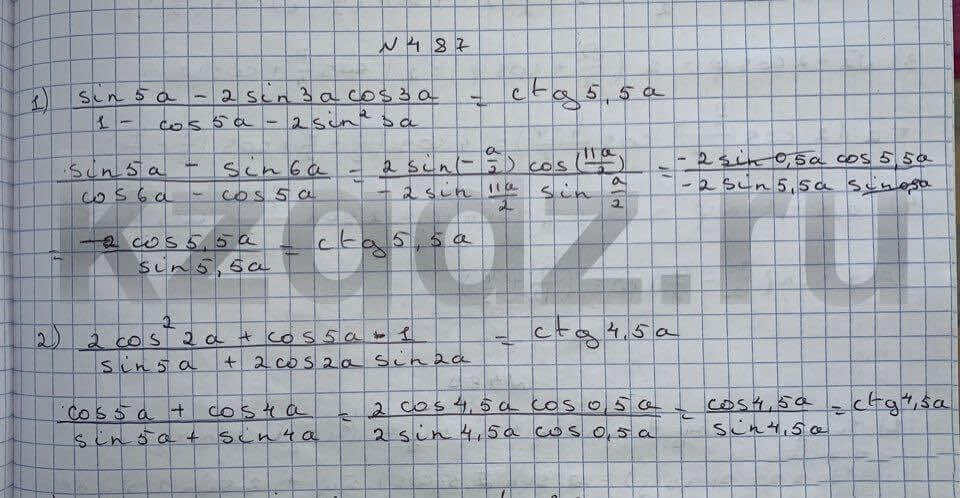 N 487
1) (sin5a - 2sin3a cos3a)/(1 - cos5a - 2sin²3a) = ctg5,5a
(sin5a - sin6a)/(cos6a - cos5a) = (2sin(-a/2) cos(11a/2))/(-2sin 11a/2 sin a/2) = (-2sin0,5a cos5,5a)/(-2sin5,5a sin0,5a)
= (-2cos5,5a)/(sin5,5a) = ctg5,5a
2) (2cos²2a + cos5a - 1)/(sin5a + 2cos2a sin2a) = ctg4,5a
(cos5a + cos4a)/(sin5a + sin4a) = (2cos4,5a cos0,5a)/(2sin4,5a cos0,5a) = cos4,5a/sin4,5a = ctg4,5a
kzgdz.ru